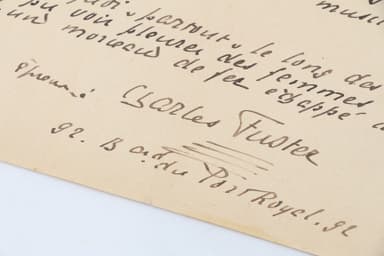 musi
partout, le long des
pu voir pleurer des femmes
un morceau de fer échappé
éprouvé
Charles Fuster
92. B ard du Port Royal. 92